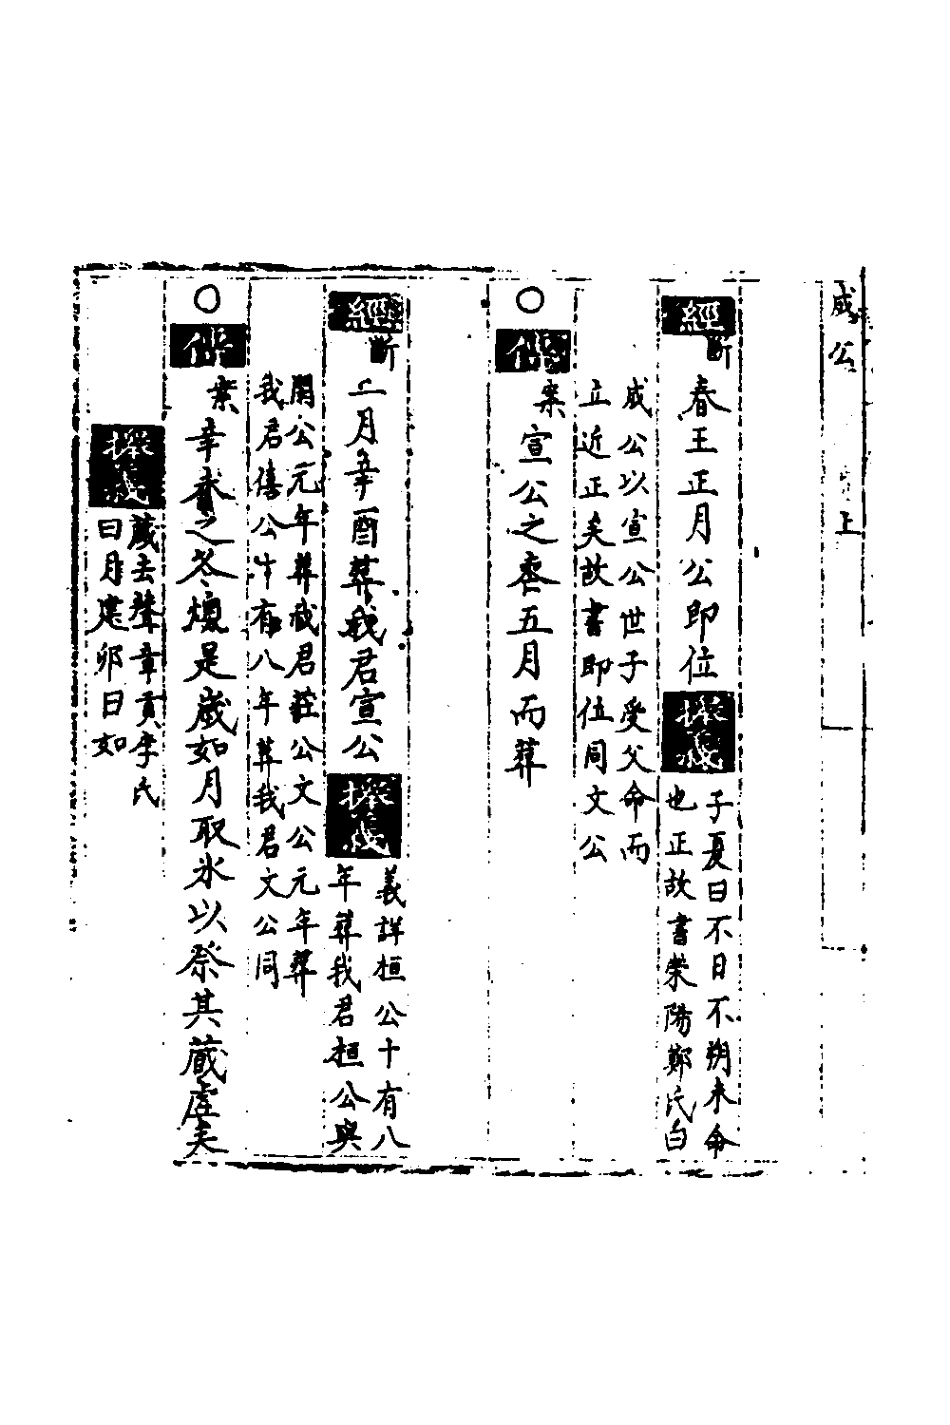 成公 上
經 斷 春王正月公即位 探義 子夏曰不日不朔未命
也正故書榮陽鄭氏白
成公以宣公世子受父命而
立近正矣故書即位同文公
○傳 案 宣公之薨五月而葬
經 斷 二月辛酉葬我君宣公 探義 義詳桓公十有八
年葬我君桓公與
閔公元年葬我君莊公文公元年葬
我君僖公十有八年葬我君文公同
○傳 案 幸春之冬燠是歲如月取氷以祭其蔵虛矣
探義 蔵去聲章貢李氏
曰月建卯日如